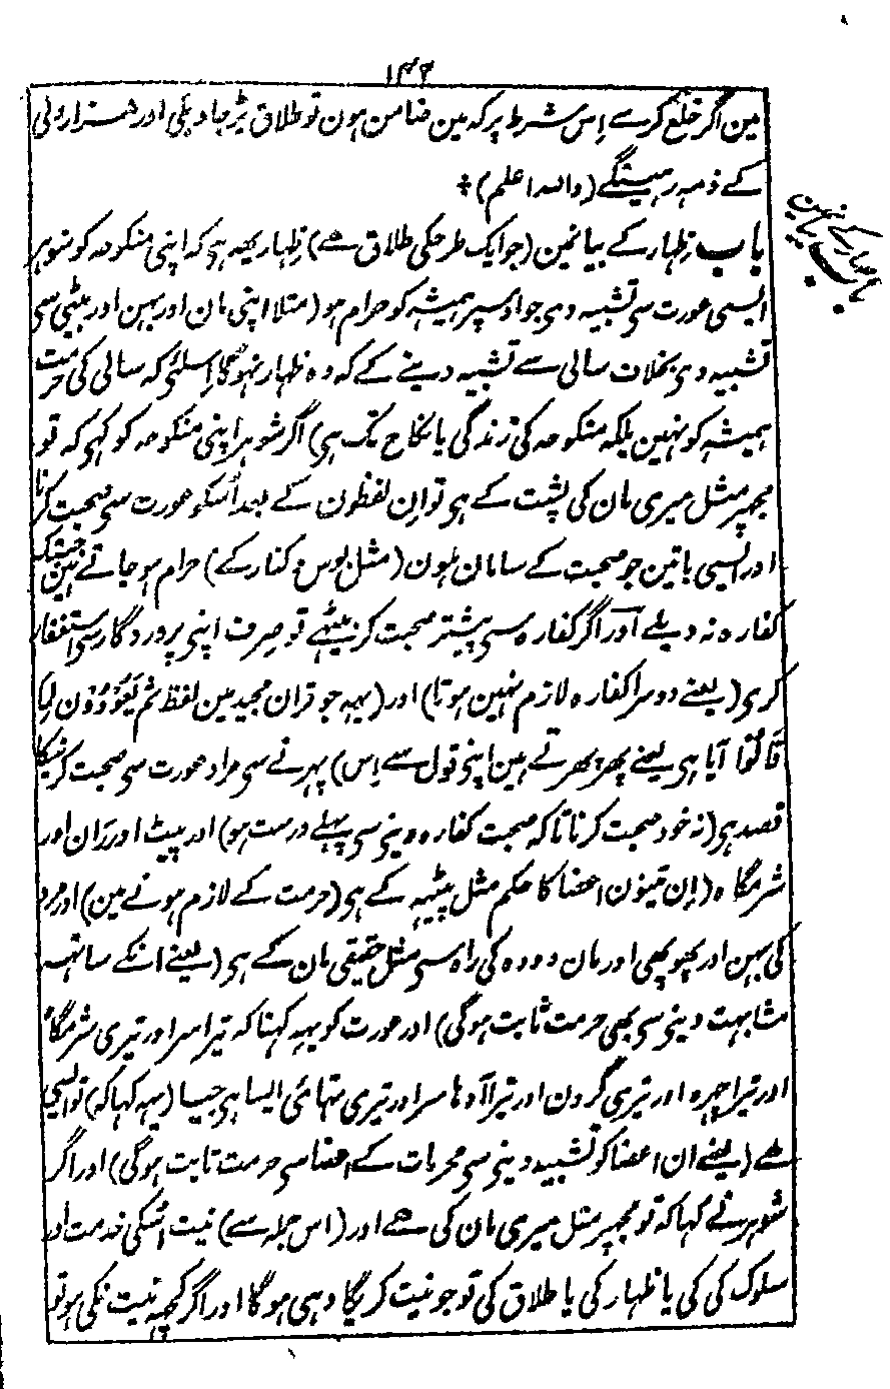 ۱۴۲
مین اگر خلع کرے اِس شرط پر کہ مین ضامن ہون تو طلاق پڑ جاویلی اور ہزار ولی
کے ذمہ رہینگے (واللہ اعلم)
باب ظِہار کے بیانمین (جو ایک طرحکی طلاق ہے) ظِہار یہہ ہی کہ اپنی منکوحہ کو شوہر
ایسی عورت سی تشبیہ دی جو اوسپر ہمیشہ کو حرام ہو (مثلا اپنی مان اور بہن اور بیٹی سی
تشبیہ دی بخلاف سالی سے تشبیہ دینے کے کہ وہ ظہار نہوگا اِسلئی کہ سالی کی حرمت
ہمیشہ کو نہین بلکہ منکوحہ کی زندگی یا نکاح تک ہی) اگر شوہر اپنی منکوحہ کو کہی کہ تو
مجہپر مثل میری مان کی پشت کے ہی تو اِن لفظون کے بعد اُسکو عورت سی صحبت کرنا
اور ایسی باتین جو صحبت کے سامان ہون (مثل بوس و کنار کے) حرام ہو جاتے ہین جبتک
کفارہ نہ دیلے اور اگر کفارہ سی پیشتر صحبت کر بیٹھے تو صِرف اپنی پروردگار سی استغفار
کری (یعنے دوسرا کفارہ لازم نہین ہوتا) اور (یہہ جو قران مجید مین لفظ ثُمَّ يَعُوْدُوْنَ لِمَا
قَالُوْا آیا ہی یعنے پھر پھرتے ہین اپنی قول سے اِس) پہرنے سی مراد عورت سی صحبت کرنیکا
قصد ہی (نہ خود صحبت کرنا تا کہ صحبت کفارہ دینی سی پہلے درست ہو) اور پیٹ اور ران اور
شرمگاہ (اِن تینون اعضا کا حکم مثل پیٹہہ کے ہی (حرمت کے لازم ہونے مین) اور مرد
کی بہن اور پھوپھی اور مان دودہ کی راہ سی مثل حقیقی مان کے ہی (یعنے انکے ساتہہ
مشابہت دینی سی بھی حرمت ثابت ہوگی) اور عورت کو یہہ کہنا کہ تیرا سر اور تیری شرمگاہ
اور تیرا چہرہ اور تیری گردن اور تیرا آدہا سر اور تیری تہائی ایسا ہی جیسا (یہہ کہا کہ) تو ایسی
ہے (یعنے ان اعضا کو تشبیہ دینی سی محرمات کے اعضا سی حرمت ثابت ہوگی) اور اگر
شوہر نے کہا کہ تو مجہپر مثل میری مان کی ہے اور (اس جملہ سے) نیت اسکی خدمت اور
سلوک کی کی یا ظہار کی یا طلاق کی تو جو نیت کریگا وہی ہوگا اور اگر کچہہ نیت نکی ہو تو
باب ظہار کے
بیانمین